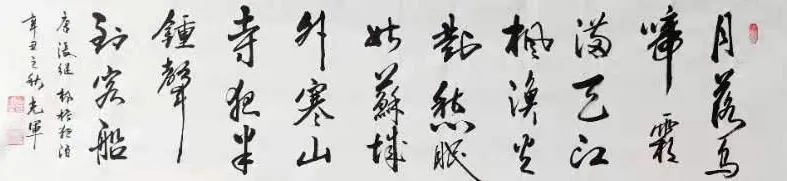 月落烏
啼霜
滿天江
楓漁火
對愁眠
姑蘇城
外寒山
寺夜半
鍾聲
到客船
唐張繼楓橋夜泊
辛丑之秋 光軍